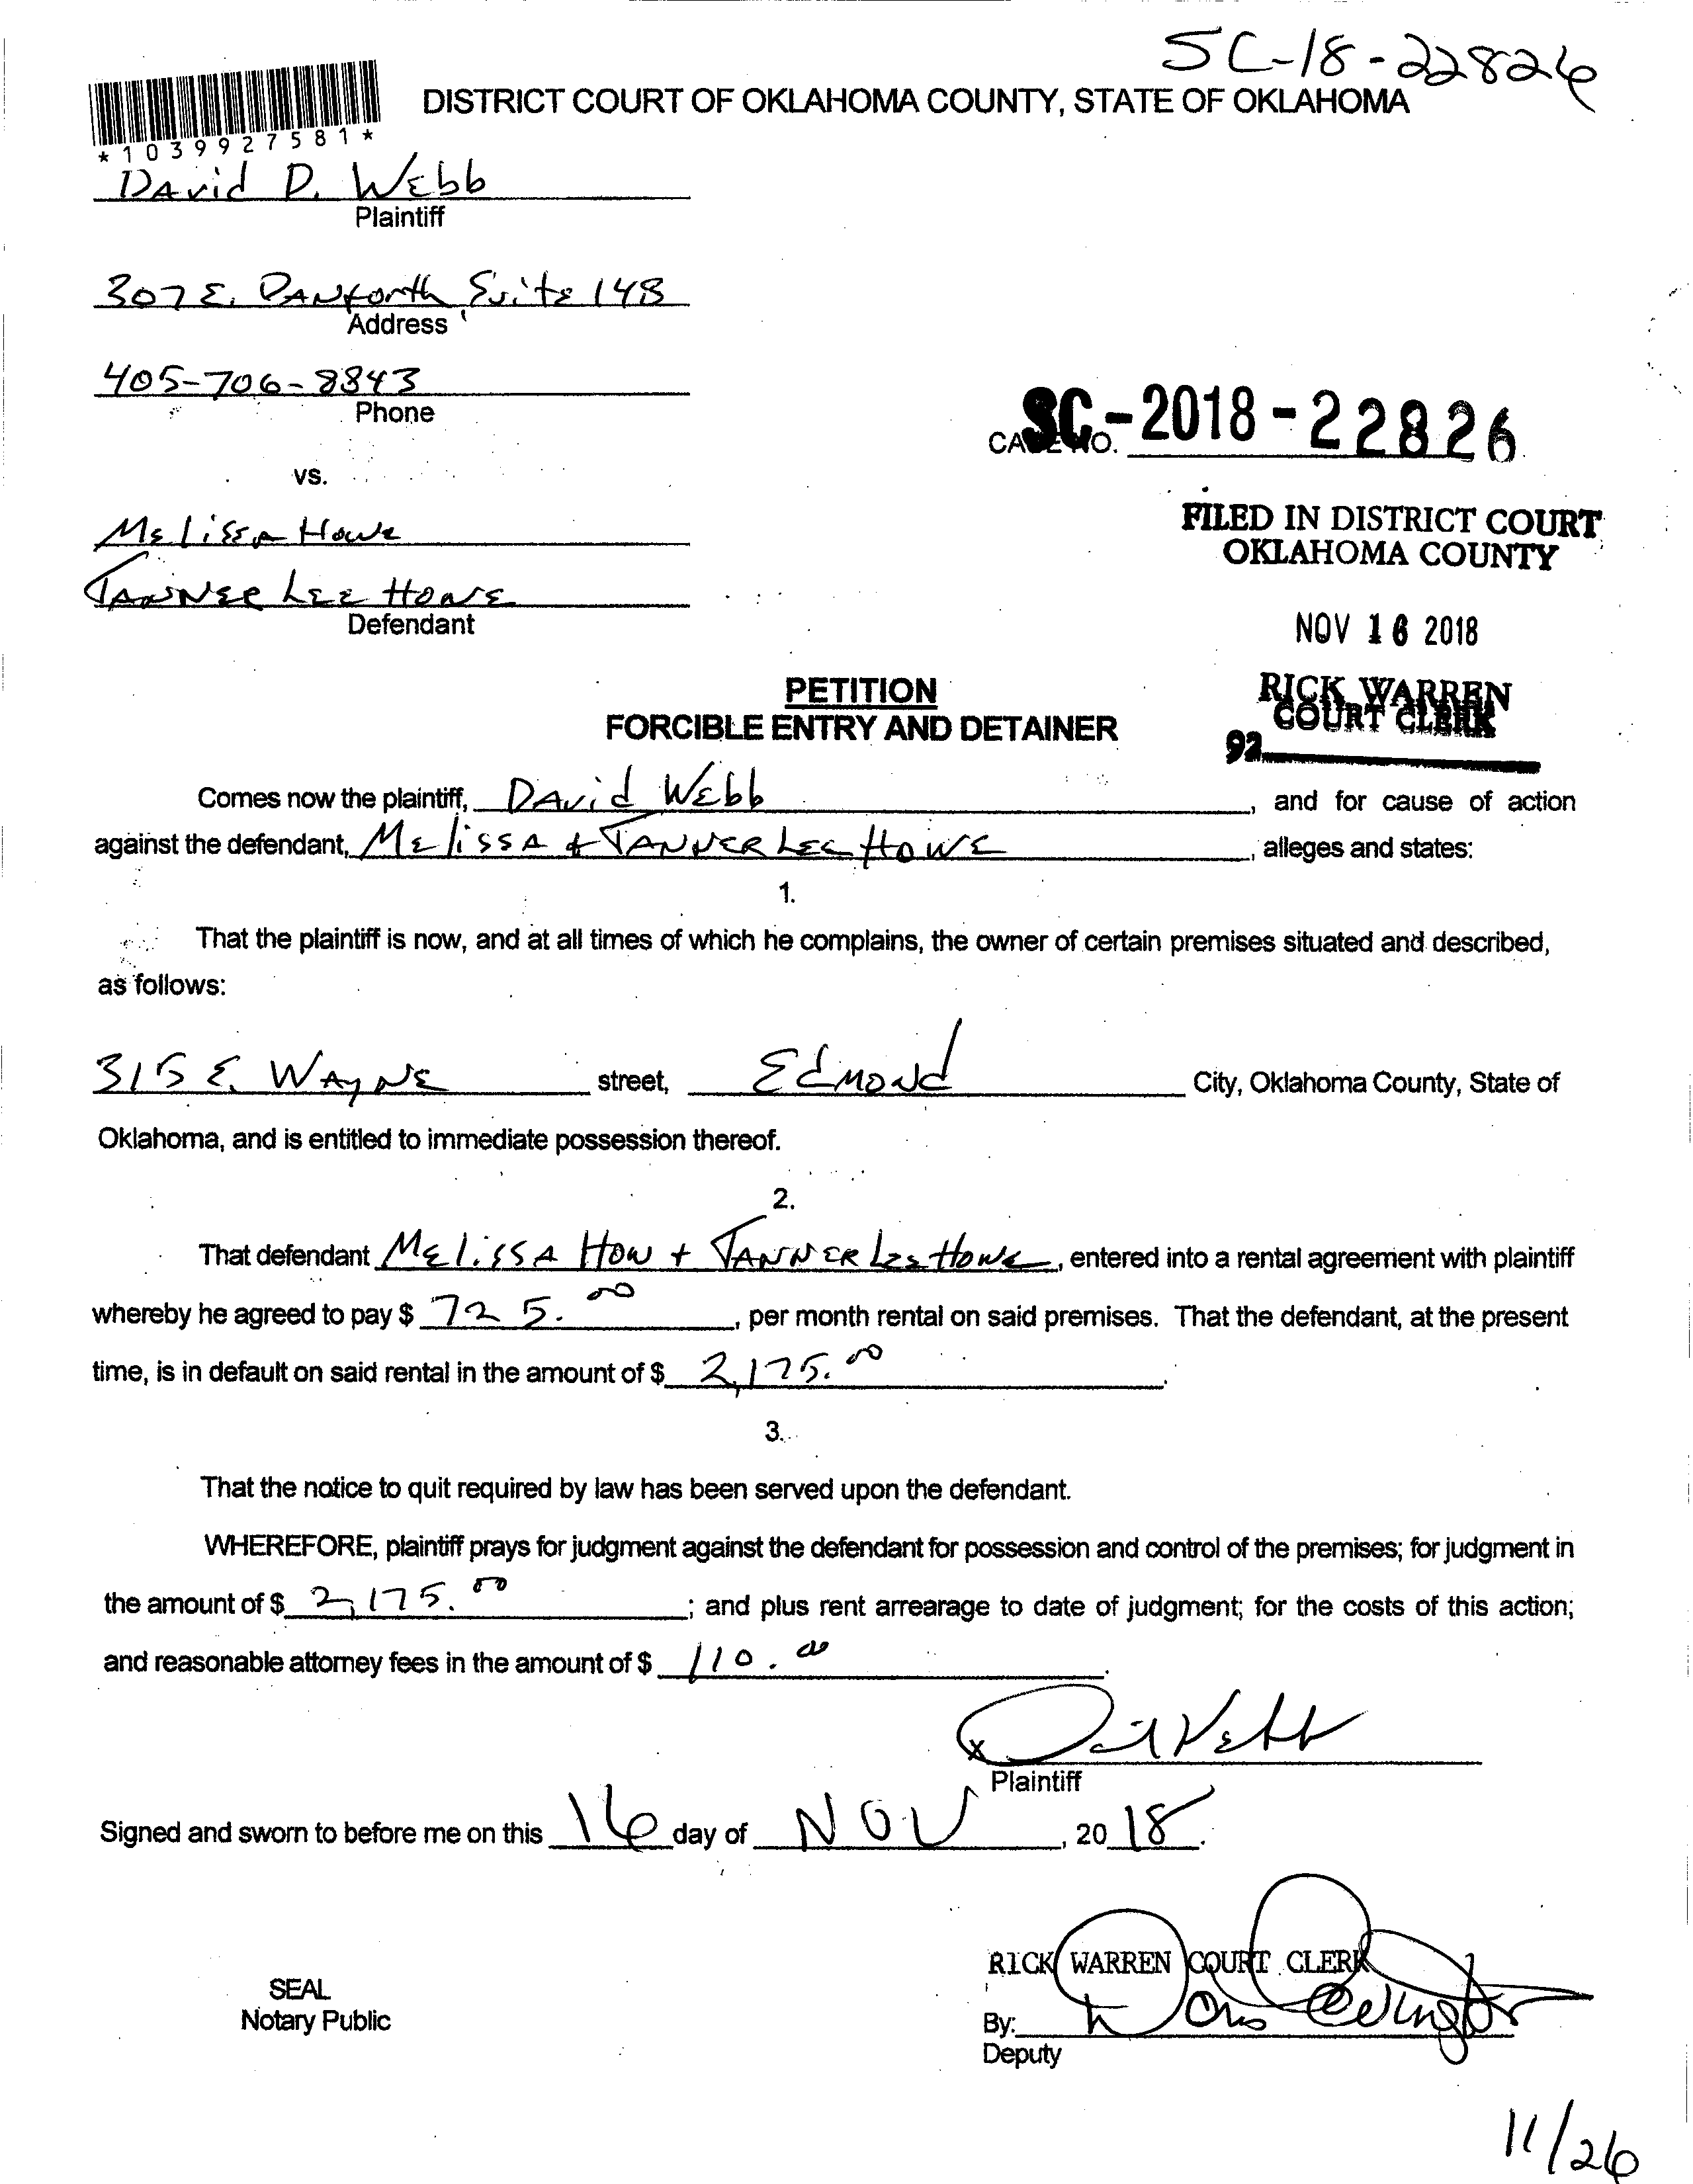 SC-18-22826
DISTRICT COURT OF OKLAHOMA COUNTY, STATE OF OKLAHOMA
*1039927581*
DAvid D. WEbb
Plaintiff
307 E. DANforth Suite 148
Address
405-706-8843
Phone
CASE NO. SC-2018-22826
vs.
FILED IN DISTRICT COURT
OKLAHOMA COUNTY
MElissA Howe
TANNER LEE HOWE
Defendant
NOV 16 2018
PETITION
RICK WARREN
COURT CLERK
FORCIBLE ENTRY AND DETAINER
92
Comes now the plaintiff, DAvid WEbb, and for cause of action
against the defendant, MElissA & TANNER LEE HOWE, alleges and states:
1.
That the plaintiff is now, and at all times of which he complains, the owner of certain premises situated and described,
as follows:
315 E. WAyNE street, EdMONd City, Oklahoma County, State of
Oklahoma, and is entitled to immediate possession thereof.
2.
That defendant MElissA HOW + TANNER LEE HOWE, entered into a rental agreement with plaintiff
whereby he agreed to pay $ 725.00, per month rental on said premises. That the defendant, at the present
time, is in default on said rental in the amount of $ 2,175.00.
3.
That the notice to quit required by law has been served upon the defendant.
WHEREFORE, plaintiff prays for judgment against the defendant for possession and control of the premises; for judgment in
the amount of $ 2,175.00; and plus rent arrearage to date of judgment; for the costs of this action;
and reasonable attorney fees in the amount of $ 110.00.
x
Plaintiff
Signed and sworn to before me on this 16 day of NOV, 2018.
RICK WARREN COURT CLERK
SEAL
Notary Public
By:
Deputy
11/26